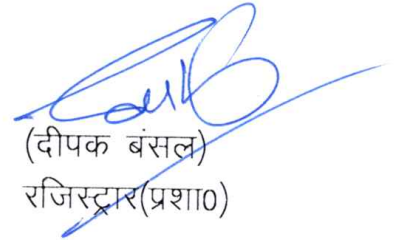 (दीपक बंसल)
रजिस्ट्रार(प्रशा0)